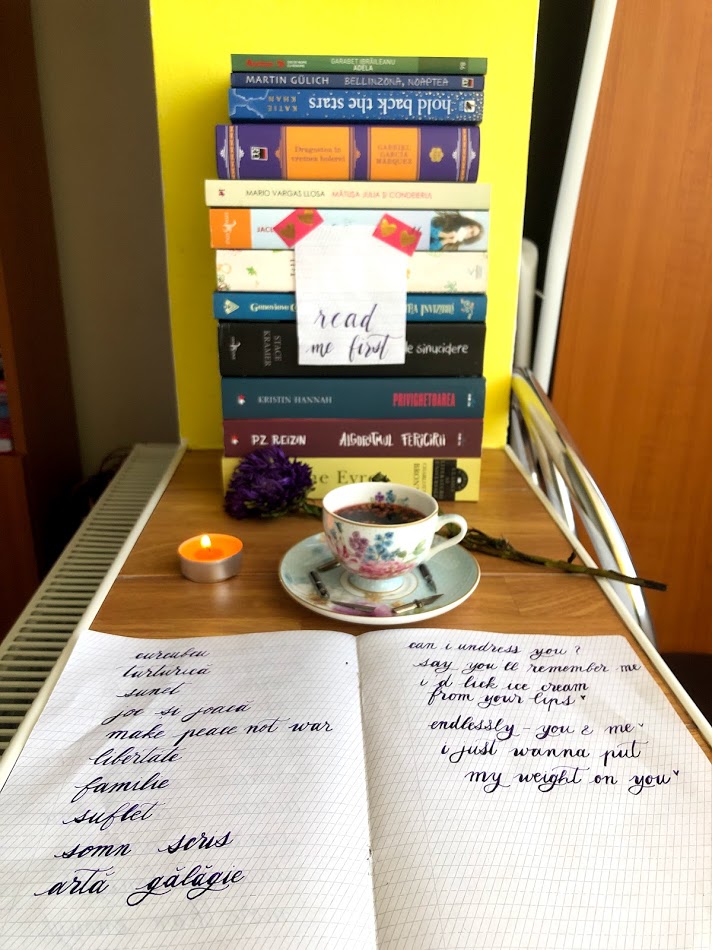 GARABET IBRĂILEANU
ADELA
98
MARTIN GÜLICH BELLINZONA, NOAPTEA
KATIE KHAN hold back the stars
Dragostea în vremea holerei
GABRIEL GARCÍA MÁRQUEZ
MARIO VARGAS LLOSA MĂTUȘA JULIA ȘI CONDEIERUL
read
me first
STACE KRAMER
de sinucidere
KRISTIN HANNAH PRIVIGHETOAREA
P.Z. REIZIN ALGORITMUL FERICIRII
Eyre
curcubeu
turturică
sunet
joc și joacă
make peace not war
libertate
familie
suflet
somn scris
artă gălăgie
can i undress you?
say you ll remember me
i d lick ice cream
from your lips
endlessly - you & me
i just wanna put
my weight on you